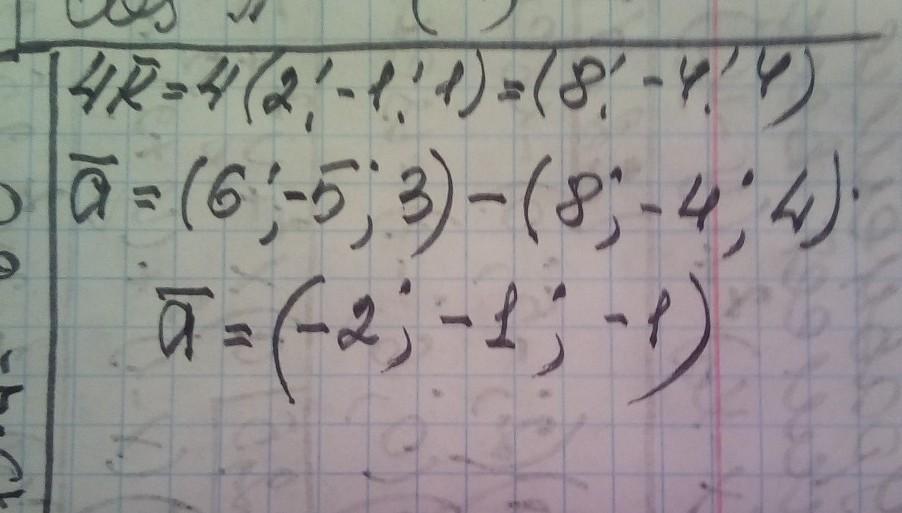 4k̄ = 4(2; -1; 1) = (8; -4; 4)
ā = (6; -5; 3) - (8; -4; 4).
ā = (-2; -1; -1)